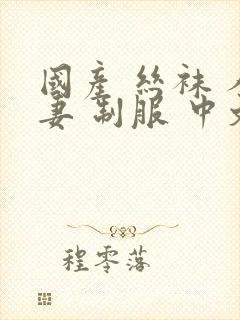 國產 絲袜
妻 制服 中
程零落